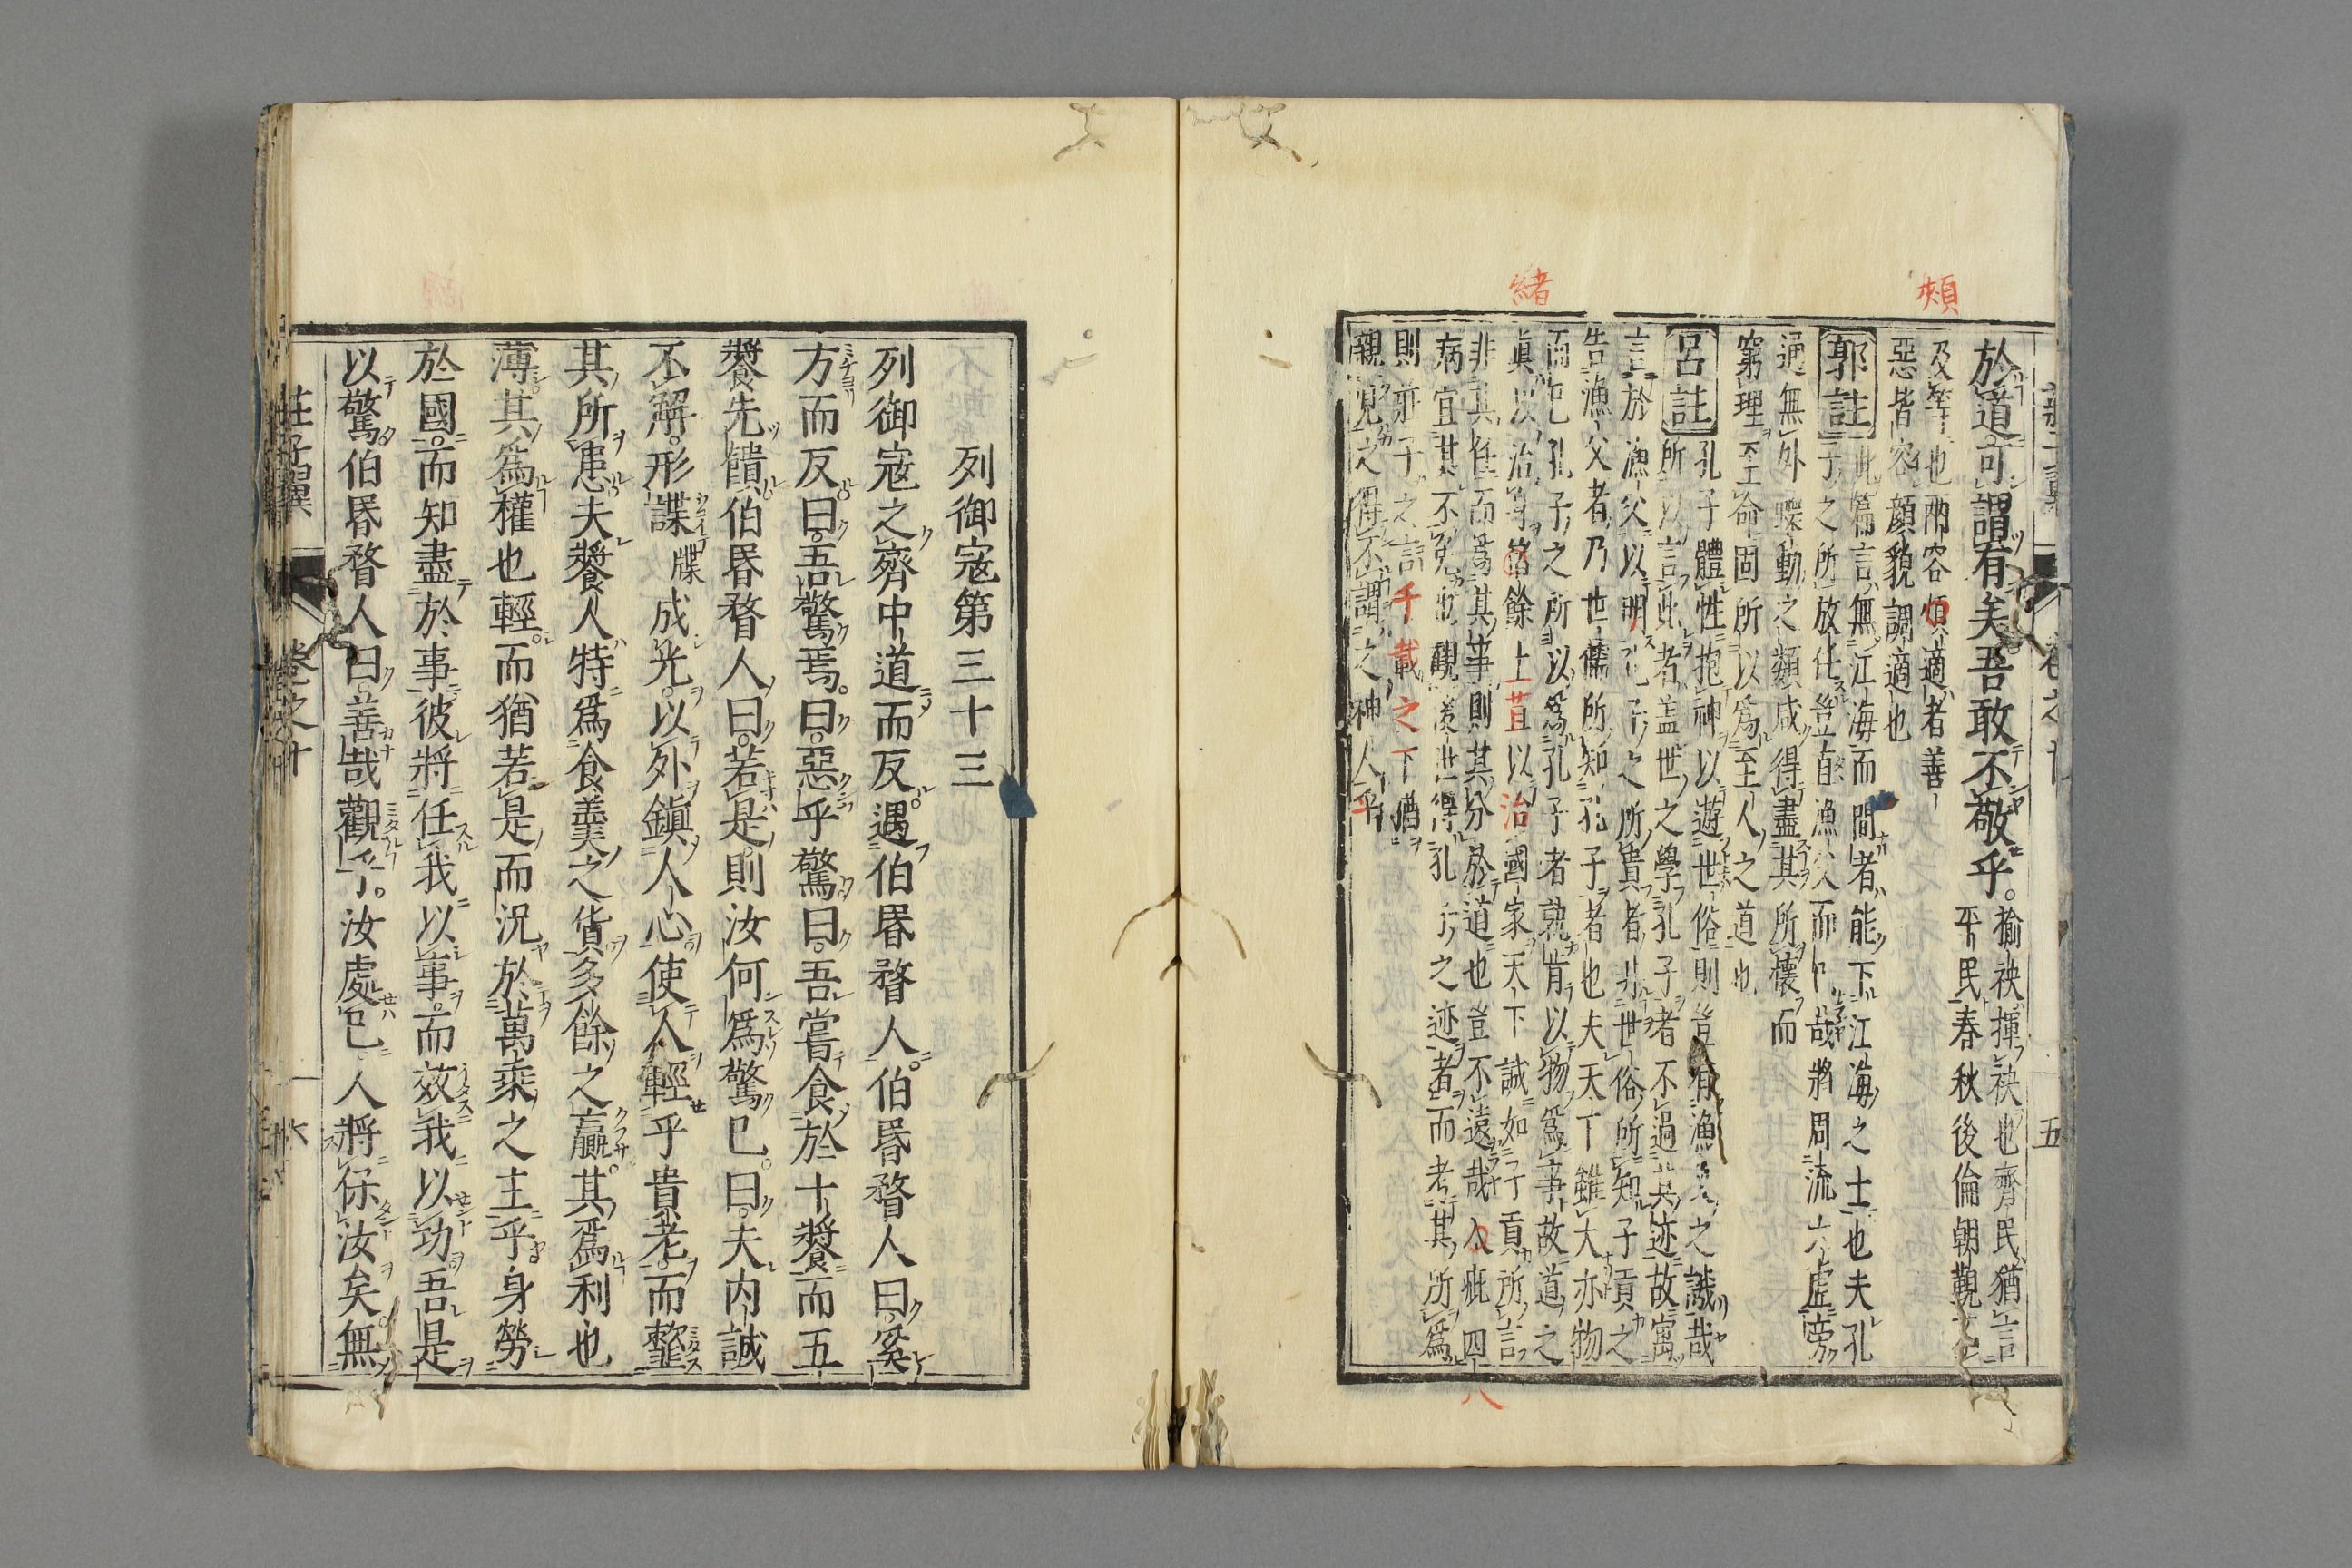 頰
緒
於道可謂有矣吾敢不敬乎。
揄袂揮袂也齊民猶言
平民春秋後倫朝觀
及等也兩容頰適者善
惡皆容顔貌調適也
郭註
此篇言無江海而間者能下江海之士也夫孔
子之所放任豈直漁父而已哉將周流六虛旁
通無外蠕動之類咸得盡其所懷而
窮理至命固所以爲至人之道也
呂註
孔子體性抱神以遊世俗則豈有漁父之譏哉
所以言此者盖世之學孔子者不過其迹故寓
言於漁父以明孔子之所貴者非世俗所知子貢之
告漁父者乃世儒所知孔子者也夫天下雖大亦物
而已孔子之所以爲孔子者孰肯以物爲事故道之
眞以治身緒餘土苴以治國家天下誠如子貢所言
非其任而爲其事則其分於道也豈不遠哉八疵四
病宜其不免也觀後世得孔子之迹者而考其所爲
則莊子之言千載之下猶
親見之得不謂之神人乎
列御寇第三十三
列御寇之齊中道而反遇伯昬瞀人。伯昬瞀人曰。奚
方而反曰。吾驚焉。曰。惡乎驚曰。吾嘗食於十䉼而五
䉼先饋伯昬瞀人曰。若是則汝何爲驚已。曰。夫内誠
不解。形諜
牒
成光。以外鎭人心使人輕乎貴老。而𩐋
其所患夫䉼人特爲食羹之貨多餘之贏。其爲利也
薄。其爲權也輕。而猶若是而況於萬乘之主乎。身勞
於國。而知盡於事彼將任我以事。而效我以功吾是
以驚伯昬瞀人曰。善哉觀乎。汝處已人將保汝矣。無
莊子翼
卷之十
六